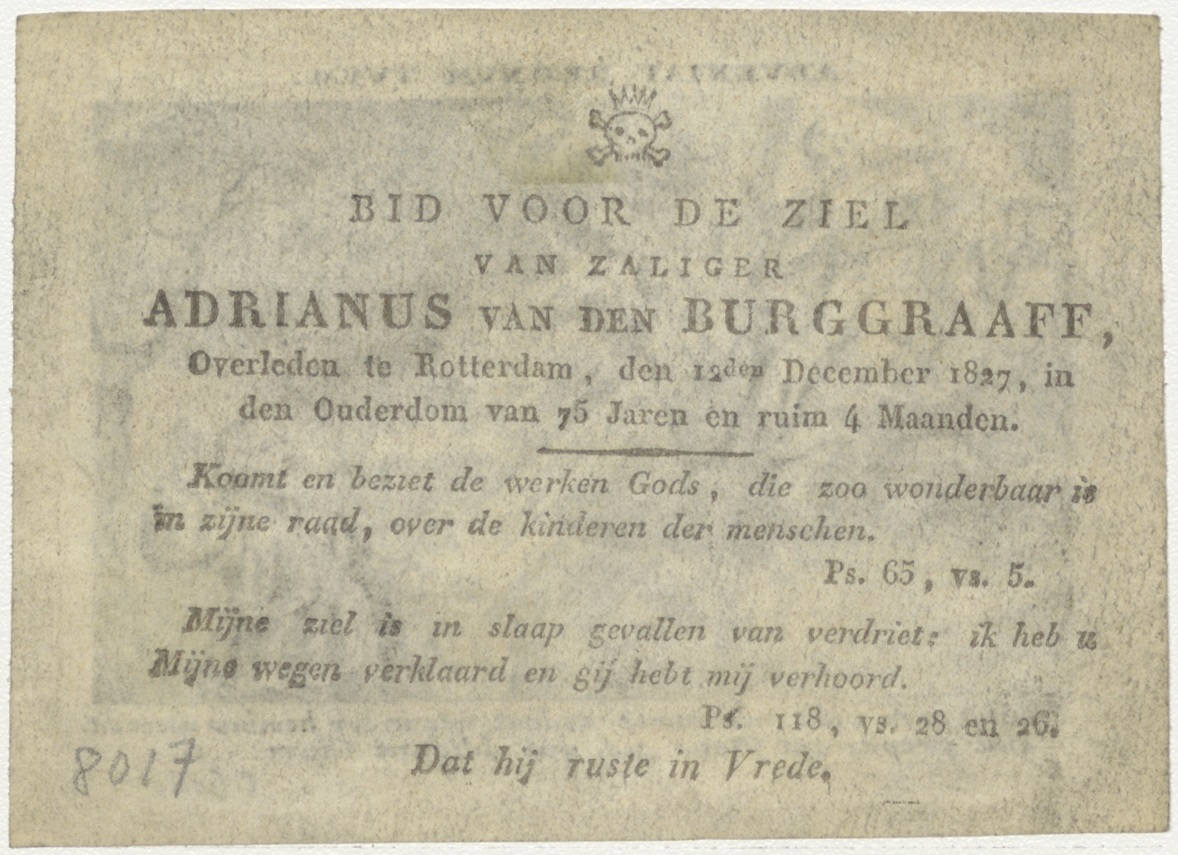 BID VOOR DE ZIEL
VAN ZALIGER
ADRIANUS VAN DEN BURGGRAAFF,
Overleden te Rotterdam, den 12den December 1827, in
den Ouderdom van 75 Jaren en ruim 4 Maanden.
Koomt en beziet de werken Gods, die zoo wonderbaar is
in zijne raad, over de kinderen der menschen.
Ps. 65, vs. 5.
Mijne ziel is in slaap gevallen van verdriet: ik heb u
Mijne wegen verklaard en gij hebt mij verhoord.
Ps. 118, vs. 28 en 26.
Dat hij ruste in Vrede.
8017